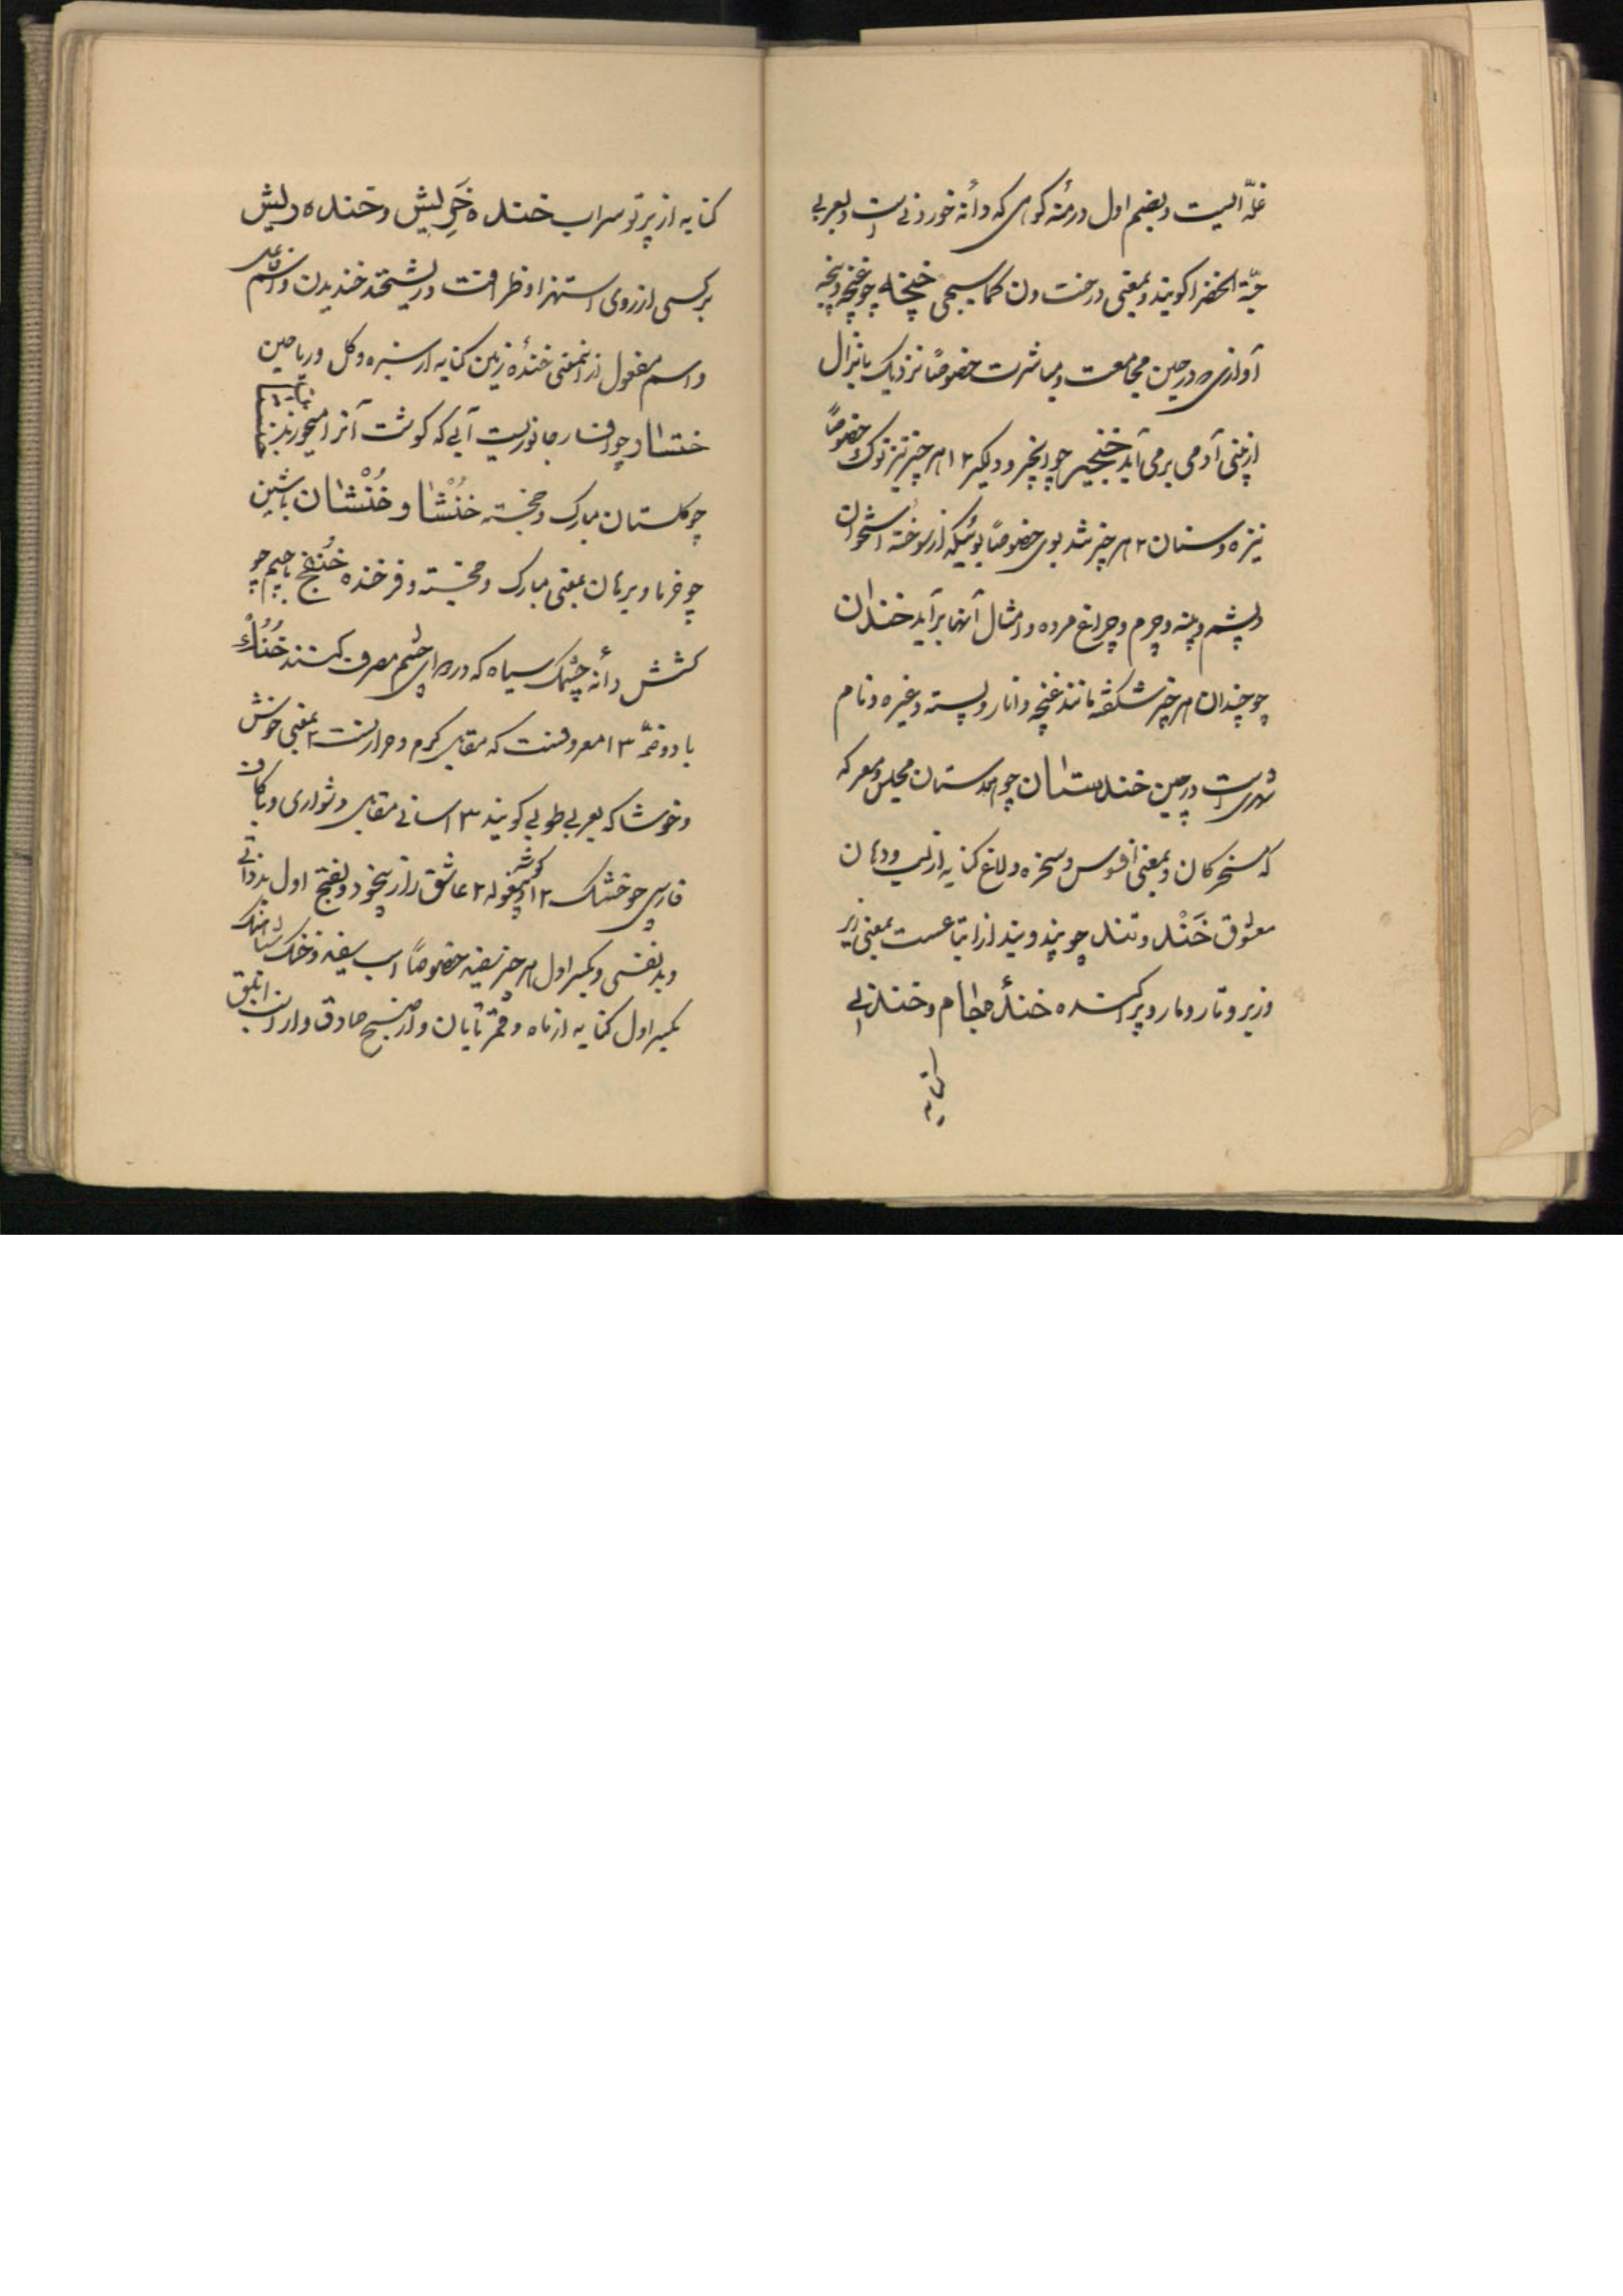 غلّه ایست و بضم اول درمنه کوهی که دانه خوردنی است و بعربی
حبّة الخضرا کویند و بمعنی درخت ون کما سیجی خنچه چو غنچه و پنجه
آوازی در حین مجامعت و مباشرت خصوصًا نزدیک بانزال
از بینی آدمی برمی آید خنجیر چو انجیر و دیکر ۲ ۱ هر چیز تیز نوک خصوصًا
نیزه و سنان ۲ هر چیز تند بوی خصوصًا بوئیکه از سوخته استخوان
و پشم و پنبه و چرم و چراغ مرده و امثال آنها برآید خندان
چو چندان هر چیز شکفته مانند غنچه و انار و پسته و غیره و نام
شهری است در چین خندستان چو هندستان مجلس و معرکه
که مسخرکان و بمعنی افسوس و سخره و لاغ کنایه از لب و دهان
معشوق خَنْد و تند چو پند و بند از اتباعست بمعنی زیر
و زبر و تار و مار و پراکنده خندهٔ جام و خنده
کنایه
کنایه از پرتو سراب خنده خَرِیش و خنده ریش
بر کسی از روی استهزا و ظرافت و ریشخند خندیدن و اسم فاعل
و اسم مفعول از انمعنی خندهٔ زمین کنایه از سبزه و کل و ریاحین
خنسار چو افسار جانوریست آبی که کوشت آنرا میخورند
چو کلستان مبارک و خجسته خُنْشا و خُنْشان باشین
چو خرما و برهان بمعنی مبارک و خجسته و فرخنده خُنْفَج باجیم چو
کشش دانه چشمک سیاه که در دوای چشم صرف کنند خُنُک
با دو ضمّ ۳ ۱ معروفست که مقابل کرم و حرارتست ۲ بمعنی خوش
و خوشا که بعربی طوبی کویند ۳ آسانی مقابل دشواری و با کاف
فارسی چو خشنک ۲ ۱ کوشه و بیغوله ۲ عاشق زار بیخود و بفتح اول بدذاتی
و بدنفسی و بکسر اول هر چیز سفید خصوصًا اسب سفید و خنک شباهنک
بکسر اول کنایه از ماه و قمر تابان و از صبح صادق و از اسب ابلق